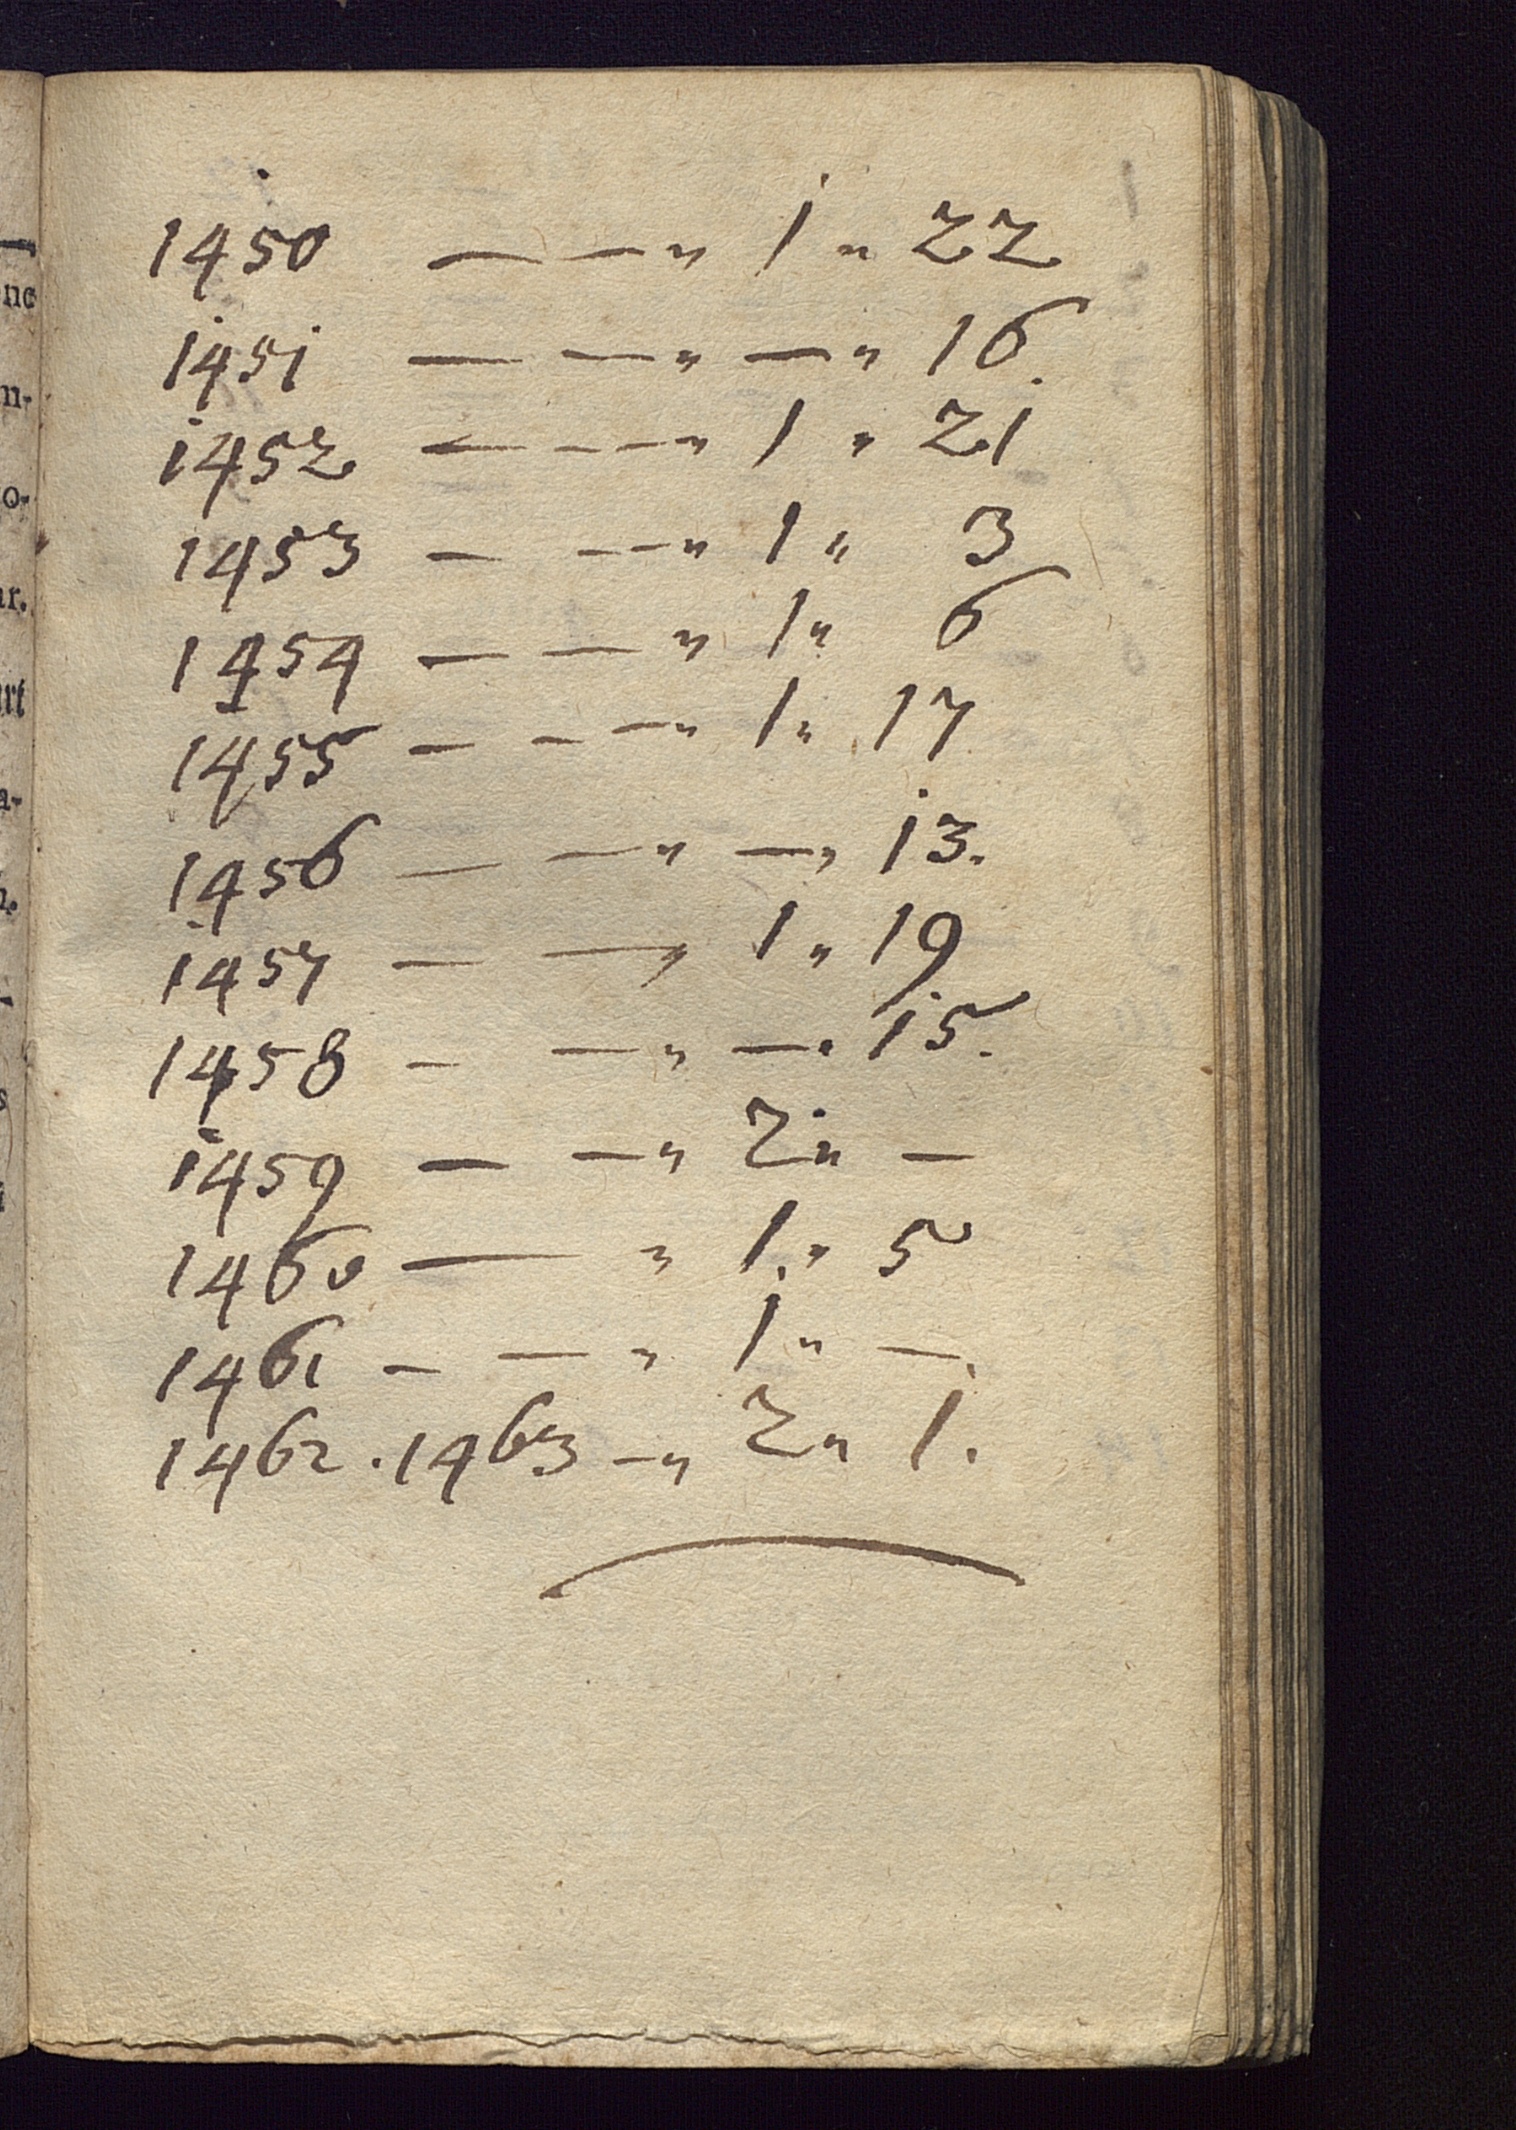 1450 — — „ 1 „ 22
1451 — — „ — „ 16.
1452 — — — „ 1 „ 21
1453 — — — „ 1 „ 3
1454 — — „ 1 „ 6
1455 — — — „ 1 „ 17
1456 — — „ — „ 13.
1457 — — „ 1 „ 19
1458 — — „ — „ 15.
1459 — — „ 2 „ —
1460 — „ 1. „ 5
1461 — — „ 1 „ —.
1462 . 1463 — „ 2 „ 1.